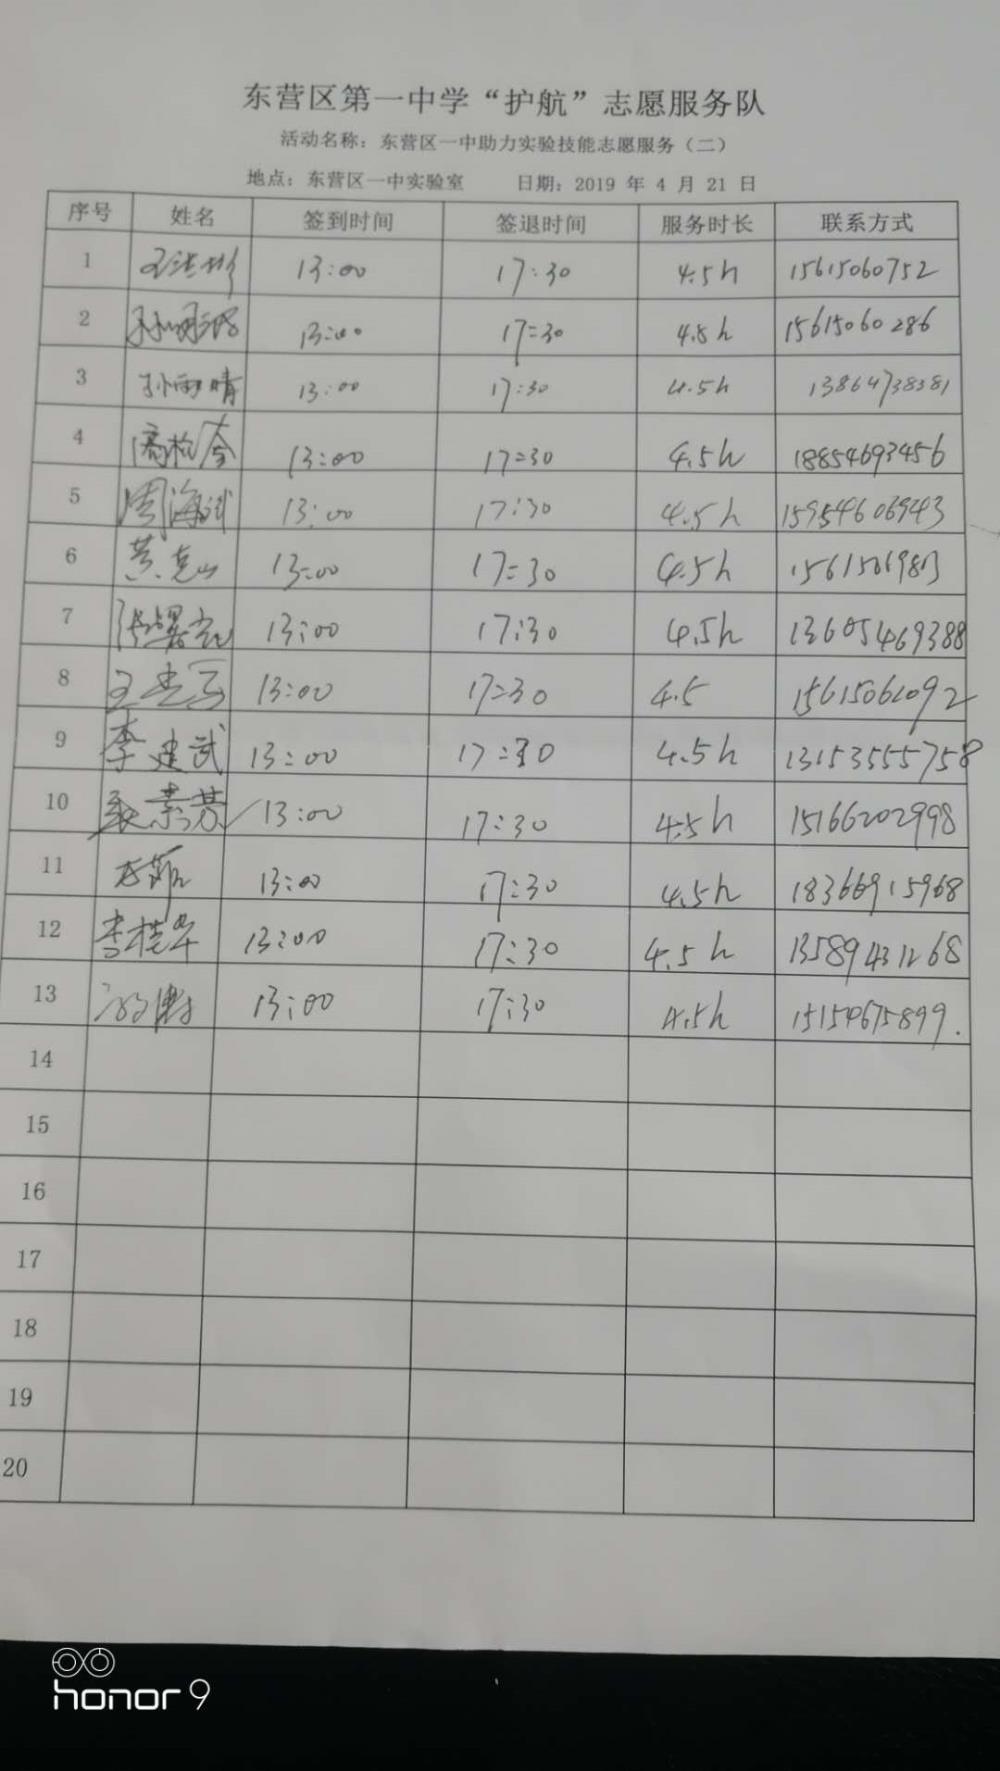 东营区第一中学“护航”志愿服务队
活动名称：东营区一中助力实验技能志愿服务（二）
地点：东营区一中实验室 日期：2019 年 4 月 21 日
序号 姓名 签到时间 签退时间 服务时长 联系方式
1 13:00 17:30 4.5h 15615060752
2 13:00 17:30 4.5h 15615060286
3 孙雨晴 13:00 17:30 4.5h 13864738381
4 13:00 17:30 4.5h 18854693456
5 周海 13:00 17:30 4.5h 15954606943
6 黄克山 13:00 17:30 4.5h
7 13:00 17:30 4.5h 13605469388
8 王 13:00 17:30 4.5 15615061092
9 李建武 13:00 17:30 4.5h 13153555758
10 素芬 13:00 17:30 4.5h 15166202998
11 13:00 17:30 4.5h 18366915968
12 李桂华 13:00 17:30 4.5h 13589431268
13 13:00 17:30 4.5h 15154675899.
14
15
16
17
18
19
20
honor 9